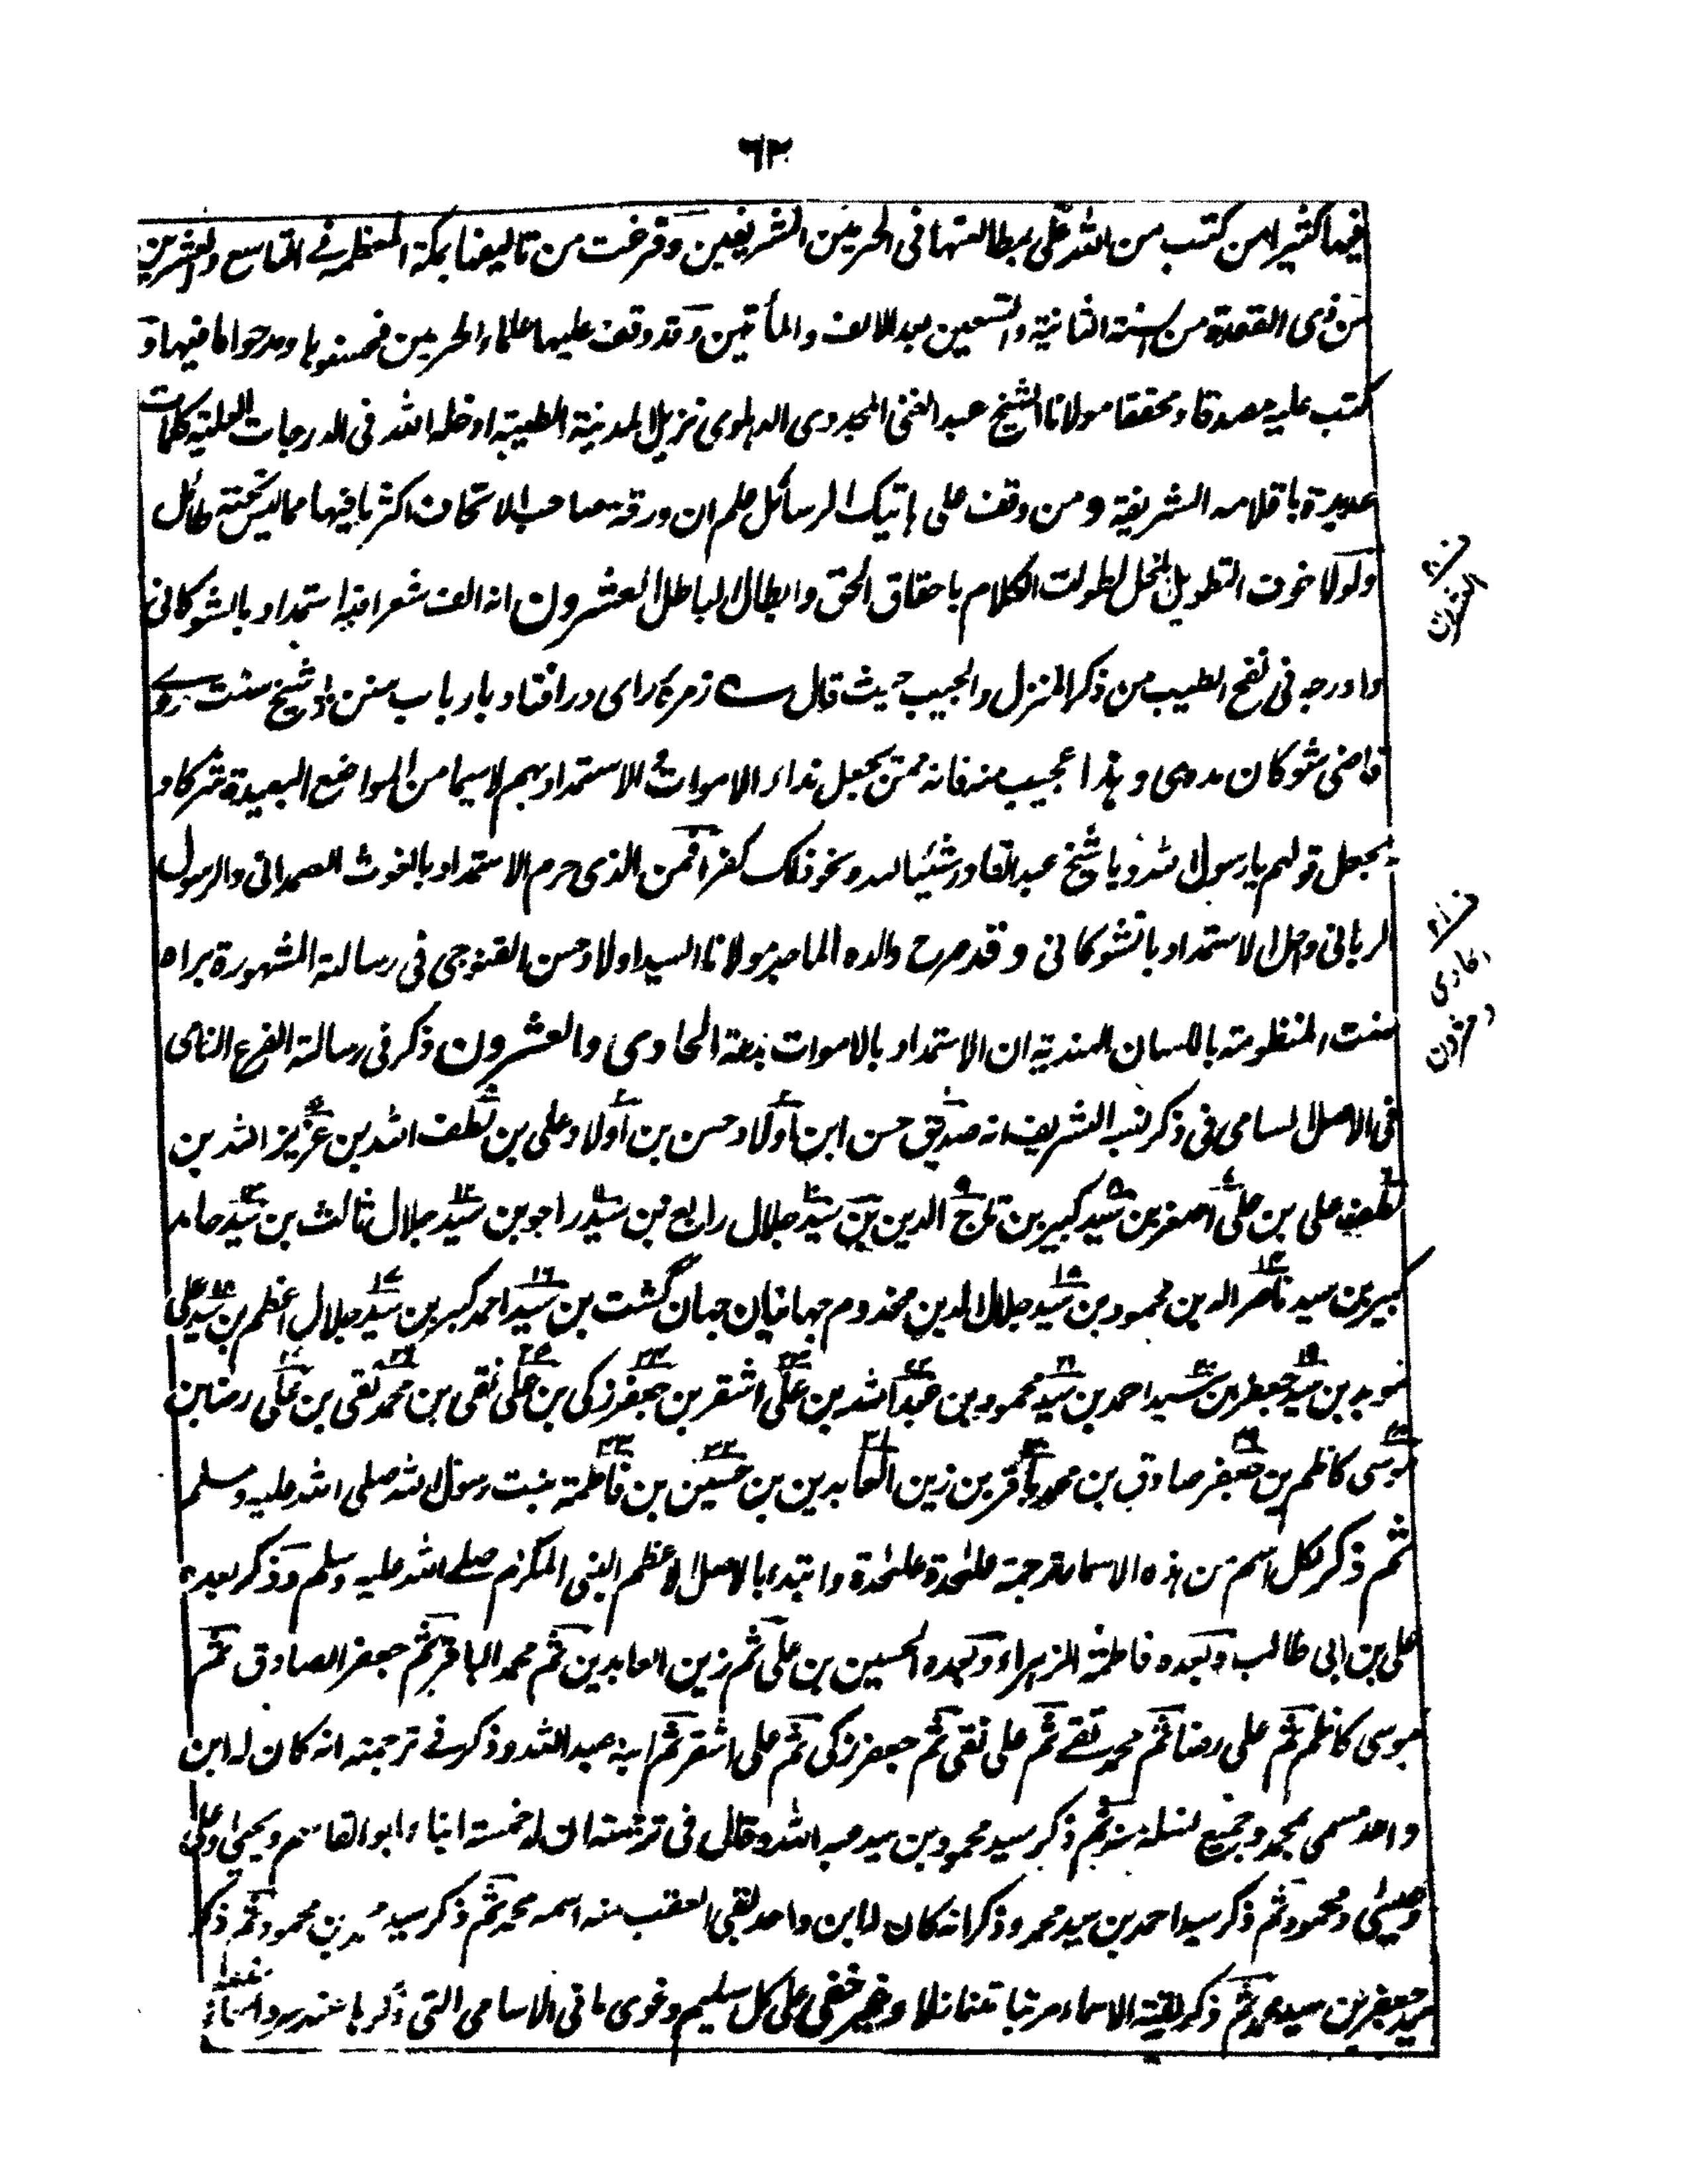 ٦٢
فيها كثيرا من كتب من الله على بمطالعتها فى الحرمين الشريفين وفرغت من تاليفها بمكة المعظمة فے التاسع والعشرين
من ذى القعدة من السنة الثانية والتسعين بعد الالف والمأتين وقد وقف عليها علماء الحرمين فحسنوها ومدحوا ما فيها و
كتب عليه مصدقا ومحققا مولانا الشيخ عبد الغنى المجددى الدهلوى نزيل المدينة الطيبة ادخله الله فى الدرجات العلية كلمات
عديدة باقلامه الشريفة ومن وقف على هاتيك الرسائل علم ان ورقة صاحب الاتحاف اكثر ما فيها مما ليس تحته طائل
ولولا خوف التطويل المخل لطولت الكلام باحقاق الحق وابطال الباطل العشرون انه الف شعرا فيه استمداد بالشوكانى
وادرجه فى نفح الطيب من ذكر المنزل والحبيب حيث قال ے زمرۀ راى در افتاد بارباب سنن شيخ سنت مددے
قاضى شوكان مددى وهذا عجيب منه فانه ممن يجعل نداء الاموات والاستمداد بهم لاسيما من المواضع البعيدة شركا و
يجعل قولهم يا رسول الله ويا شيخ عبد القادر شيئا لله ونحو ذلك كفرا فمن الذى حرم الاستمداد بالغوث الصمدانى والرسول
الربانى واحل الاستمداد بالشوكانى وقد صرح والده الماجد مولانا السيد اولاد حسن القنوجى فى رسالته المشهورة براه
سنت المنظومة باللسان الهندية ان الاستمداد بالاموات بدعة الحادى والعشرون ذكر فى رسالته الفرع النامى
فى الاصل السامى فى ذكر نسبه الشريف انه صديق حسن ابن اولاد حسن بن اولاد على بن لطف الله بن عزيز الله بن
لطف على بن على اصغر بن سيد كبير بن تاج الدين بن سيد جلال رابع بن سيد راجو بن سيد جلال ثالث بن سيد حامد
كبير بن سيد ناصر الدين محمود بن سيد جلال الدين مخدوم جهانيان جهان گشت بن سيد احمد كبير بن سيد جلال اعظم بن سيد على
مويد بن سيد جعفر بن سيد احمد بن سيد محمود بن عبد الله بن على اشقر بن جعفر زكى بن على نقى بن محمد تقى بن على رضا بن
موسى كاظم بن جعفر صادق بن محمد باقر بن زين العابدين بن حسين بن فاطمة بنت رسول الله صلى الله عليه وسلم
ثم ذكر لكل اسم من هذه الاسماء ترجمة علحدة علحدة وابتدء بالاصل الاعظم النبى المكرم صلے الله عليه وسلم وذكر بعده
على بن ابى طالب وبعده فاطمة الزهراء وبعده الحسين بن على ثم زين العابدين ثم محمد الباقر ثم جعفر الصادق ثم
موسى كاظم ثم على رضا ثم محمد تقے ثم على نقى ثم جعفر زكى ثم على اشقر ثم ابنه عبد الله وذكر فے ترجمته انه كان له ابن
واحد مسمى بمحمد وجميع نسله منه ثم ذكر سيد محمود بن سيد عبد الله وقال فى ترجمته ان له خمسة ابناء ابو القاسم ويحيى وعلى
وعيسى ومحمود ثم ذكر سيد احمد بن سيد محمد وذكر انه كان له ابن واحد لقى العقب منه اسمه محمد ثم ذكر سيد بن محمود ثم ذكر
سيد جعفر بن سيد محمد ثم ذكر بقية الاسماء مرتبا متنازلا وغير خفى على كل سليم دعوى ما فى الاسامى التى ذكرها عند سرد
العشرون
الحادى
والعشرون